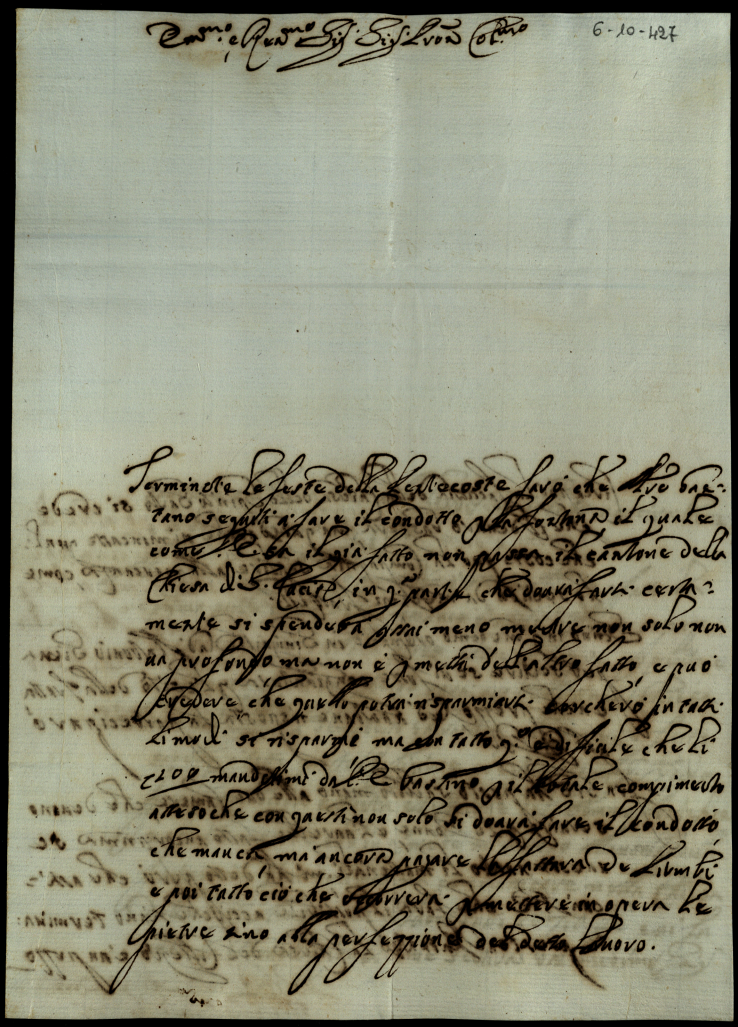 Em.mo e Rev.mo Sig. Sig. Pron Col.mo
6-10-427
Terminate le feste della Pentecoste farò che Mro bas-
tiano seguiti a fare il condotto p la fontana il quale
come V.E. sa il già fatto non passa il cantone della
Chiesa di S. in q.a parte che dovrà farsi certa-
mente si spenderà assai meno mentre non solo non
va profondo ma non è p metà dell'altro fatto e può
credere che quello potrà risparmiarsi cercherò in tutti
li modi si risparmi ma con tutto q.o è difficile che li
200 mandatimi da V.E. bastino p il totale compimento
atteso che con questi non solo si dovrà fare il condotto
che manca ma ancora pagare la fattura de Piombi
e poi tutto ciò che occorrerà p mettere in opera le
pietre sino alla perfezzione del detto lavoro.